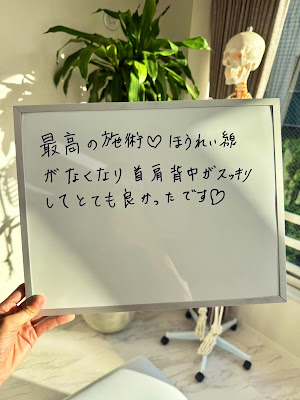 最高の施術♡ほうれい線
がなくなり首肩背中がスッキリ
してとても良かったです♡